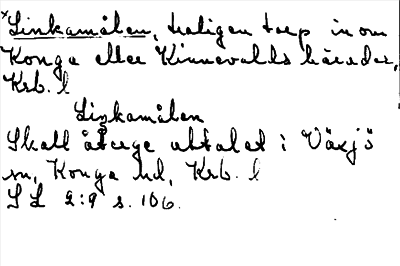 *Linkamålen, troligen torp inom
Konga eller Kinnevalds härader,
Krb. l
Linkamålen
Skall återge uttalet i Växjö
sn, Konga hd, Krb. l
SL 2:9 s. 106.